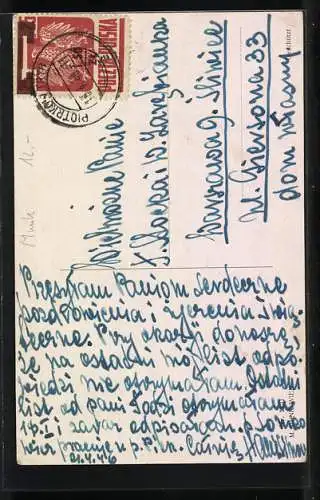 POLSKA
PIOTRKÓW
Munk 12.-
Wielmożne Panie
i W. Zarębianka
Warszawa g. Śliwice
ul. Giersona 33
dom własny
Przesyłam Paniom serdeczne
pozdrowienia i życzenia świą-
teczne. Przy okazji donoszę
że na ostatni mój list odpo-
wiedzi nie otrzymałam. Ostatni
list od pani Lodzi otrzymałam
i zaraz odpisałam. p.
pracuje w
21.4.46